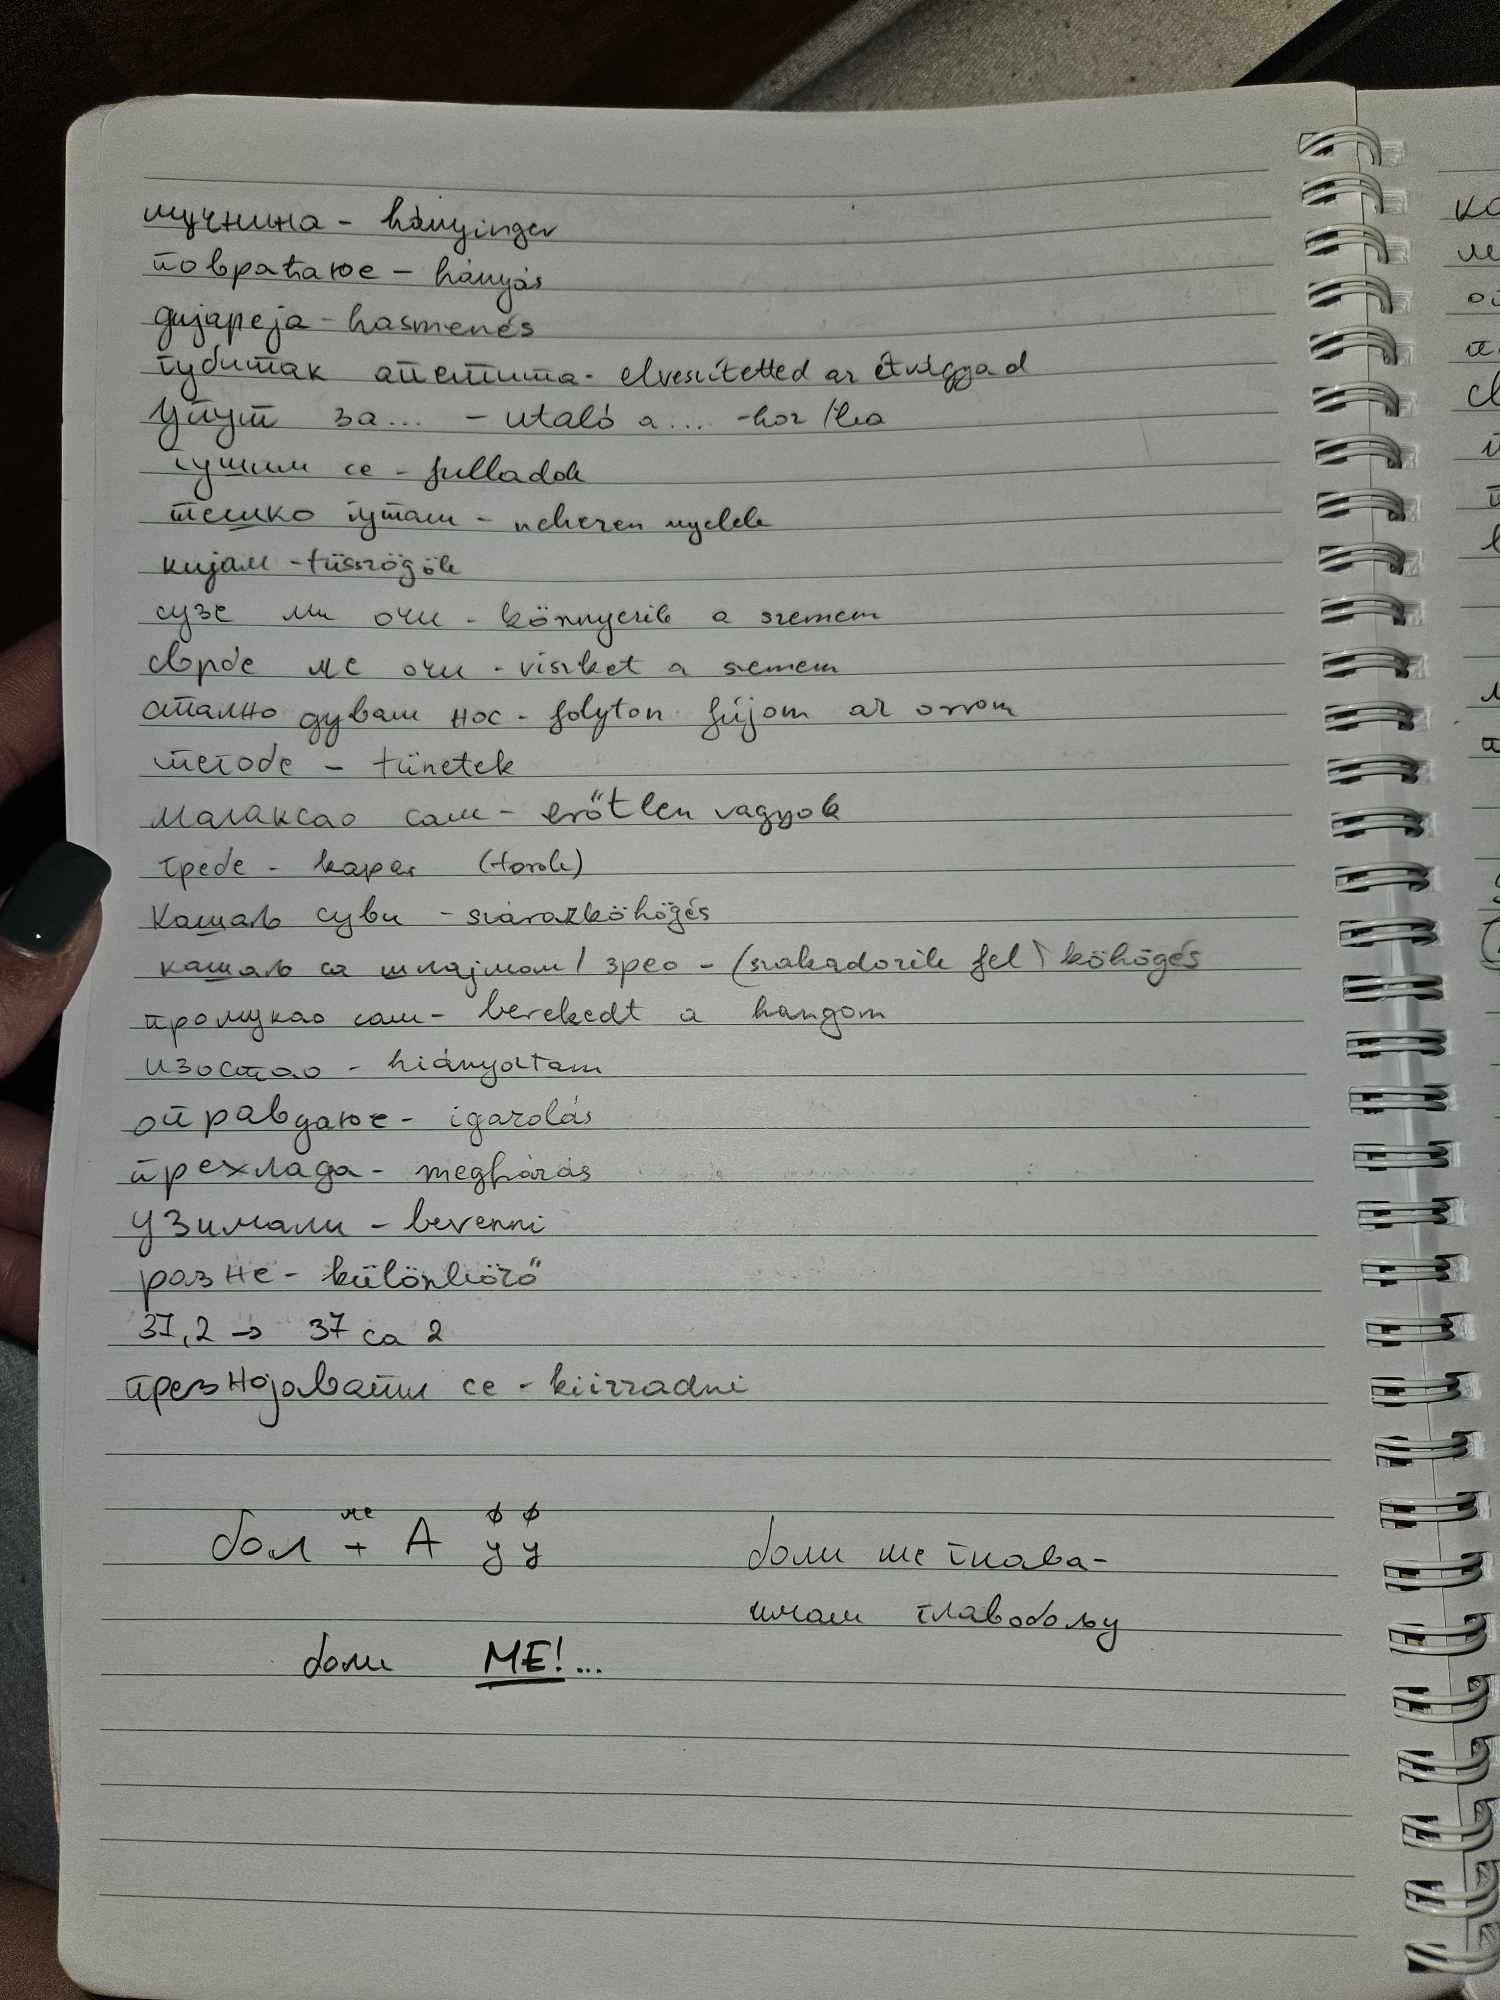 мучнина - hányinger
повраћање - hányás
дијареја - hasmenés
губитак апетита - elveszítetted az étvággyad
Упут за... - utaló a .... -hoz /ba
гушим се - fulladok
тешко гутам - nehezen nyelek
кијам - tüsszögök
сузе ми очи - könnyezik a szemem
сврбе ме очи - viszket a szemem
стално дувам нос - folyton fújom az orrom
тегобе - tünetek
малаксао сам - erőtlen vagyok
гребе - kapar (torok)
Кашаљ суви - szárazköhögés
кашаљ са шлајмом / зрео - (szakadozik fel) köhögés
промукао сам - berekedt a hangom
изостао - hiányoztam
оправдање - igazolás
прехлада - megfázás
узимали - bevenni
разне - különböző
37,2 → 37 са 2
презнојавати се - kiizzadni
ме ф ф
бол + А у у
боли ме глава -
имам главобољу
боли МЕ!...
ко